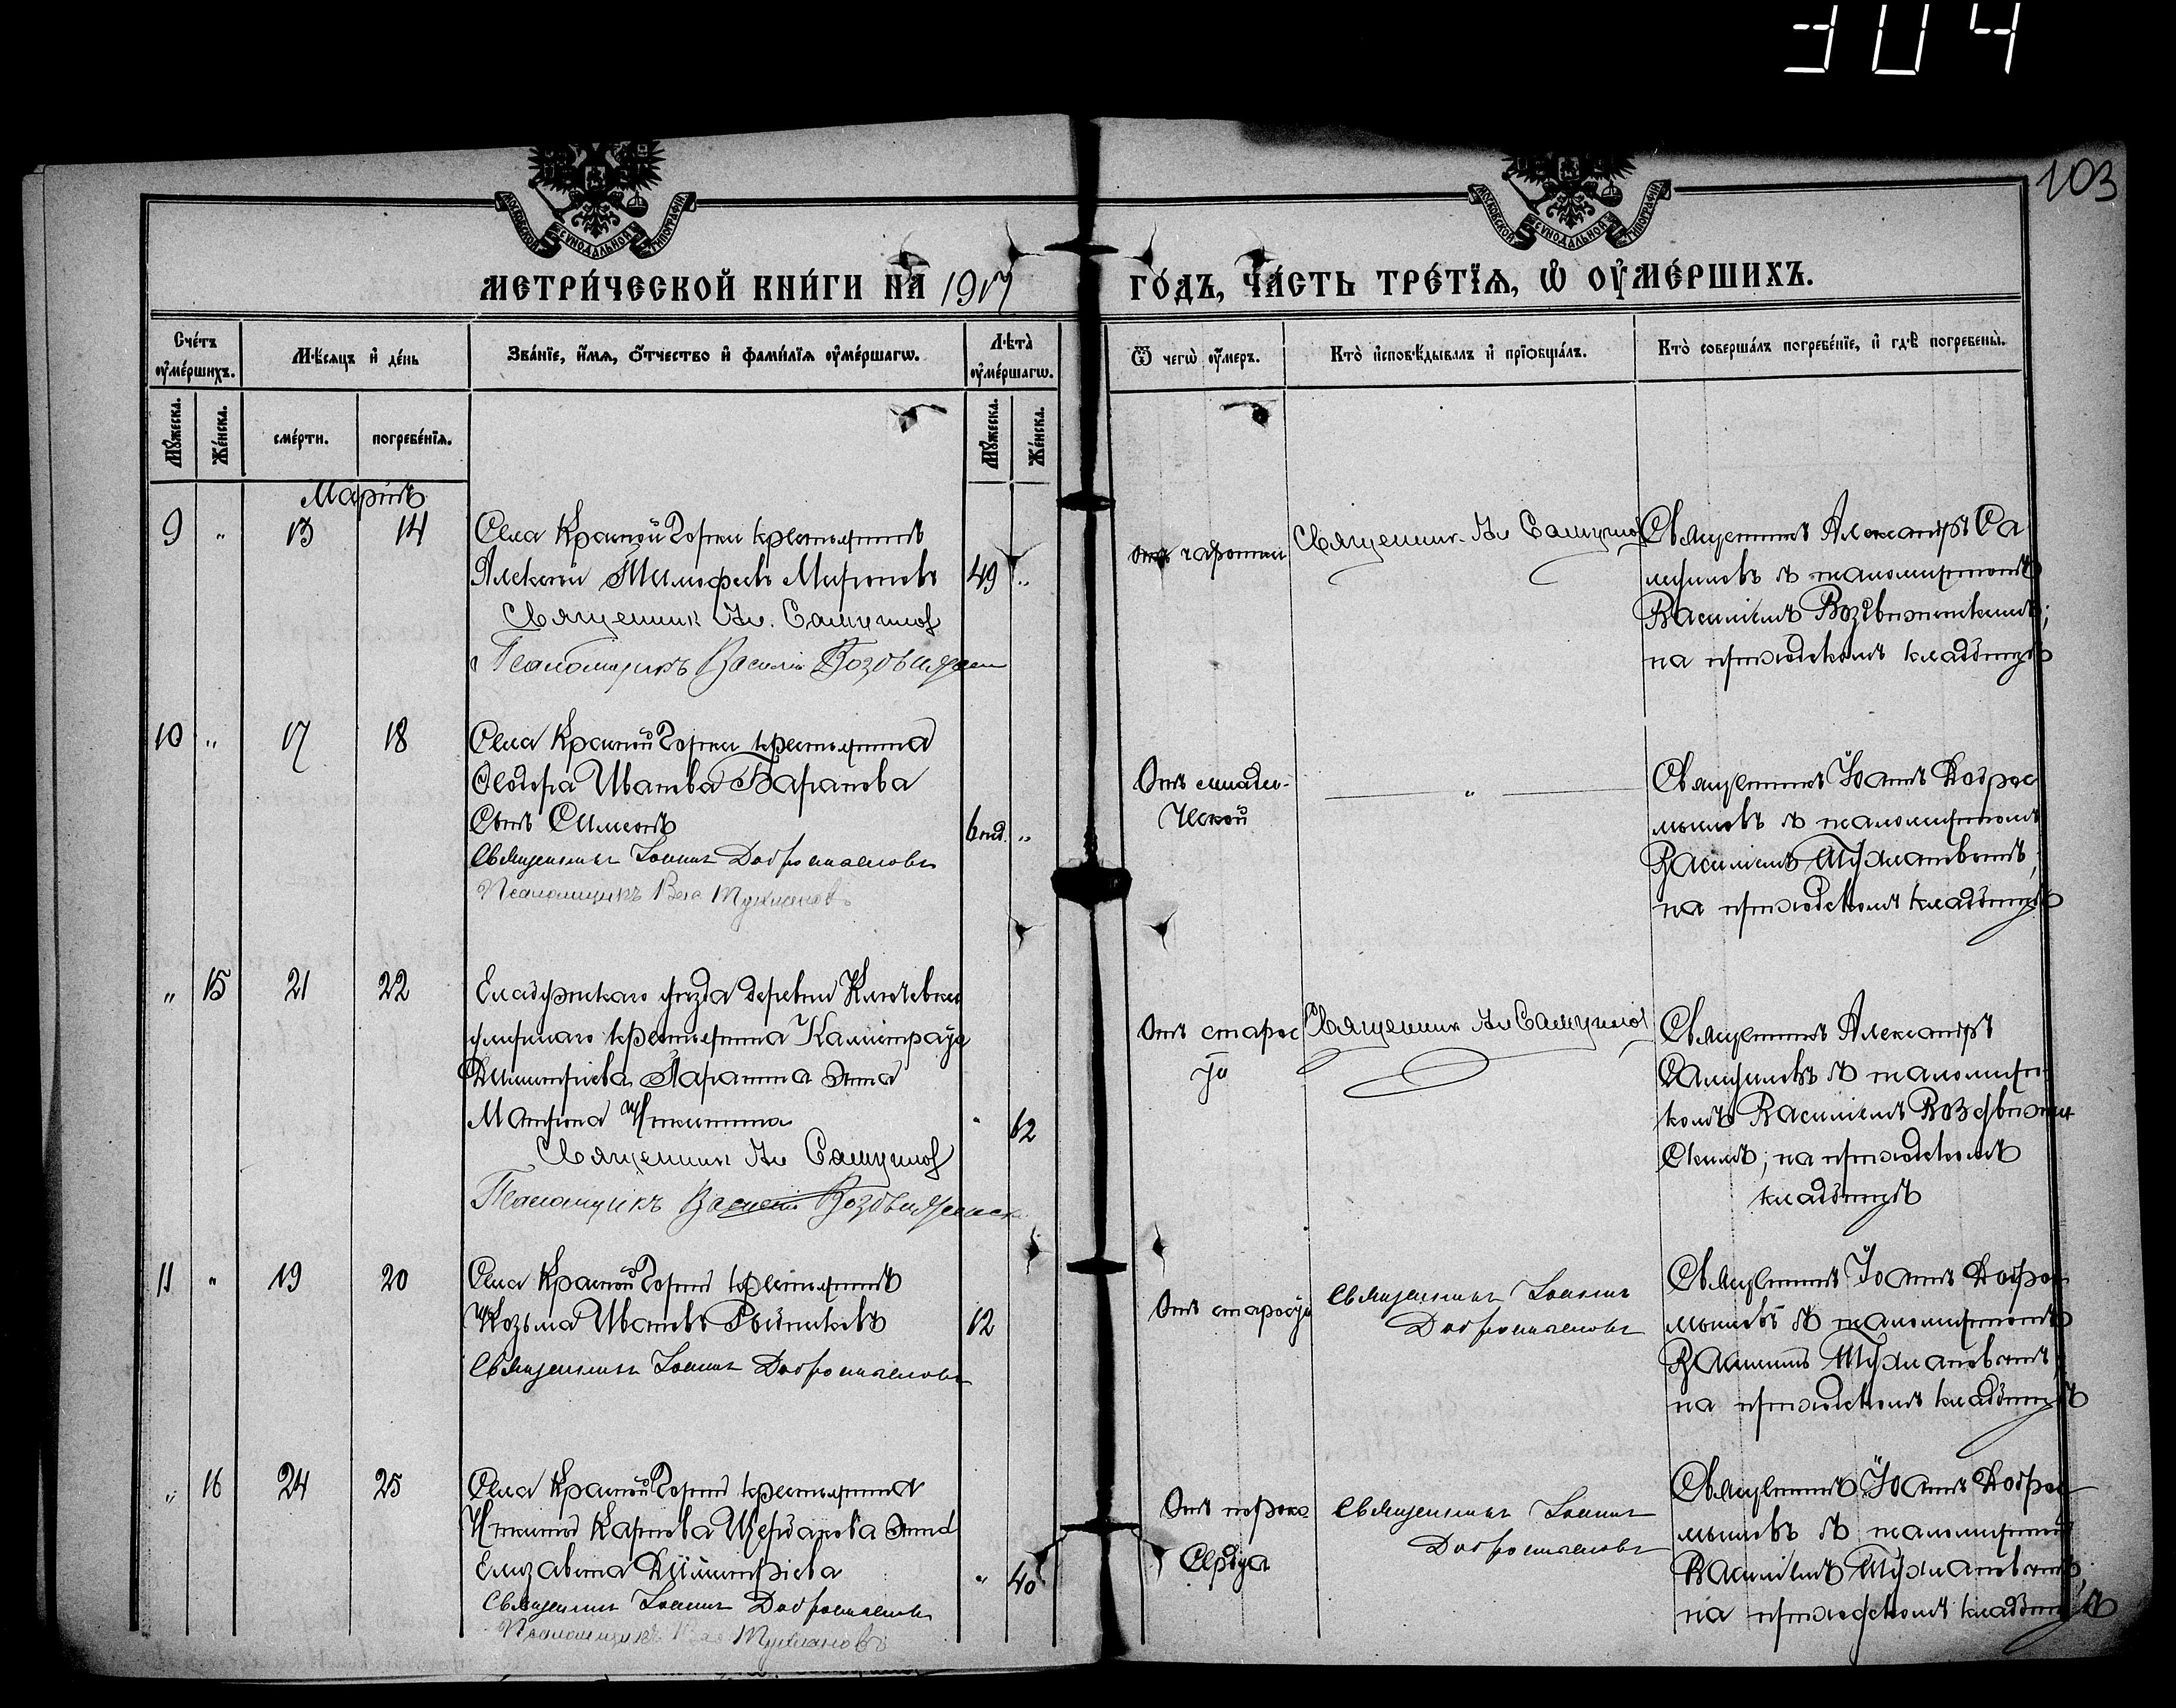 304
103
МОСКОВСКОЙ СѴНОДАЛЬНОЙ ТИПОГРАФІИ
МОСКОВСКОЙ СѴНОДАЛЬНОЙ ТИПОГРАФІИ
МЕТРИ́ЧЕСКОЙ КНИ́ГИ НА 1917 ГО́ДЪ, ЧА́СТЬ ТРЕ́ТЇѦ, Ѡ҆ ОУ҆МЕ́РШИХЪ.
Сче́тъ оу҆ме́ршихъ.
Мѣ́сяцъ и҆ де́нь
Зва́нїе, и҆́мѧ, ѻ҆́тчество и҆ фами́лїѧ оу҆ме́ршагѡ.
Лѣ́та оу҆ме́ршагѡ.
Ѿ чегѡ̀ оу҆́меръ.
Кто̀ и҆сповѣ́дывалъ и҆ прїѡбща́лъ.
Кто̀ соверша́лъ погребе́нїе, и҆ гдѣ̀ погребены̀.
Мꙋ́жеска.
Же́нска.
сме́рти.
погребе́нїѧ.
Мꙋ́жеска.
Же́нска.
Мартъ
9 " 13 14
Села Красной Горки крестьянинъ
Алексѣй Тимофеевъ Мироновъ 49 "
Священник Ал. Самуилов
Псаломщикъ Василій Воздвижен
чахотки
Священник Ал Самуилов
Священникъ Александръ Са
муиловъ съ псаломщикомъ
Василіемъ Воздвиженскимъ;
на приходскомъ кладбищѣ
10 " 17 18
Села Красной Горки крестьянина
Ѳеодора Иванова Баранова
сынъ Симеонъ 6 нед. "
Священникъ Іоаннъ Добросмысловъ
Псаломщикъ Вас Тухмановъ
Отъ младен-
ческой
"
Священникъ Іоаннъ Доброс
мысловъ съ псаломщикомъ
Василіемъ Тухмановымъ;
на приходскомъ кладбищѣ
" 15 21 22
Елабужскаго уѣзда деревни Ключевки
умершаго крестьянина Калистрата
Димитріева жена
Матрона Никитина " 62
Священник Ал Самуилов
Псаломщикъ Василій Воздвиженск
Отъ старос
ти
Священник Ал Самуилов
Священникъ Александръ
Самуиловъ съ псаломщи-
комъ Василіемъ Воздвижен
скимъ; на приходскомъ
кладбищѣ
11 " 19 20
Села Красной Горки крестьянинъ
Козьма Ивановъ 62
Священникъ Іоаннъ Добросмысловъ
Отъ старости
Священникъ Іоаннъ
Добросмысловъ
Священникъ Іоаннъ Доброс
мысловъ съ псаломщикомъ
Василіемъ Тухмановымъ;
на приходскомъ кладбищѣ
" 16 24 25
Села Красной Горки крестьянина
Никиты Карпова Щербакова жена
Елизавета Димитріева " 40
Священникъ Іоаннъ Добросмысловъ
Псаломщикъ Вас Тухмановъ
Отъ порока
сердца
Священникъ Іоаннъ
Добросмысловъ
Священникъ Іоаннъ Доброс
мысловъ съ псаломщикомъ
Василіемъ Тухмановымъ;
на приходскомъ кладбищѣ